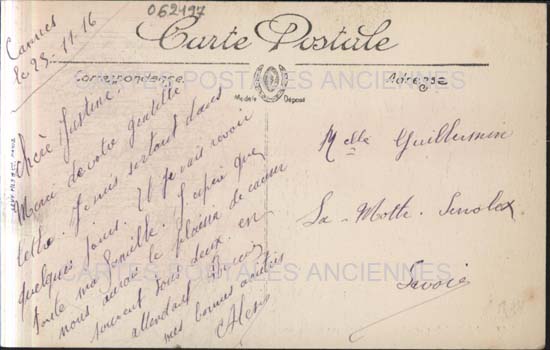 062197
Cannes
le 25.11.16
Carte Postale
Correspondance
Adresse
Modèle Déposé
CARTES POSTALES ANCIENNES
Chère Justine.
Merci de votre gentille
lettre. Je suis partant dans
quelques jours. Et je vais revoir
toute ma famille. J'espère que
nous aurons le plaisir de causer
souvent tous deux. en
attendant
mes bonnes amitiés
Melle Guillermin
La-Motte-Servolex
CARTES POSTALES ANCIENNES
Savoie